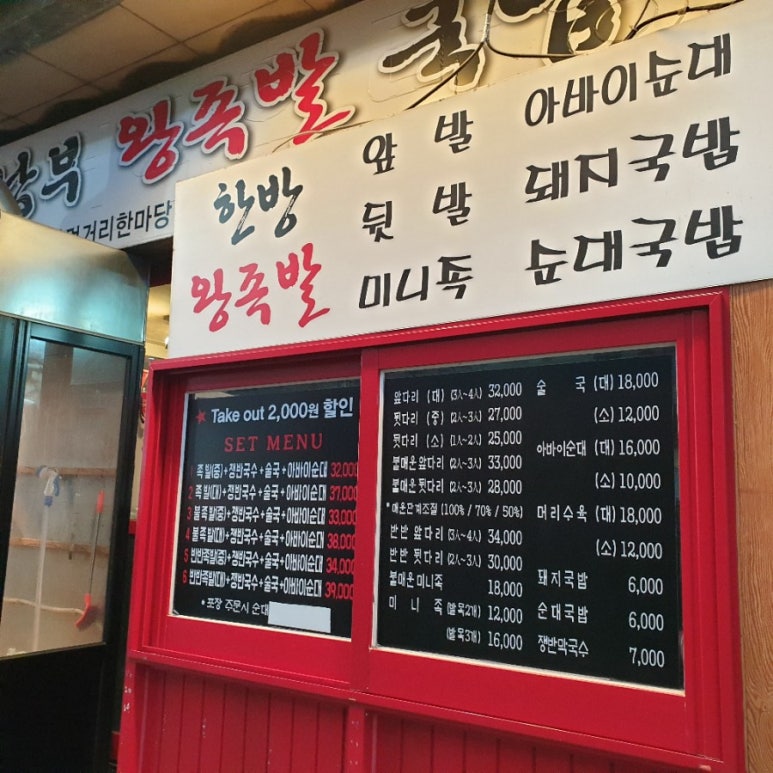 왕족발 국밥
먹거리한마당
한방
왕족발
앞 발
뒷 발
미니족
아바이순대
돼지국밥
순대국밥
★ Take out 2,000원 할인
SET MENU
1 족발(중)+쟁반국수+술국+아바이순대 32,000
2 족발(대)+쟁반국수+술국+아바이순대 37,000
3 불족발(중)+쟁반국수+술국+아바이순대 33,000
4 불족발(대)+쟁반국수+술국+아바이순대 38,000
5 반반족발(중)+쟁반국수+술국+아바이순대 34,000
6 반반족발(대)+쟁반국수+술국+아바이순대 39,000
* 포장 주문시 순대
앞다리 (대) (3人~4人) 32,000
뒷다리 (중) (2人~3人) 27,000
뒷다리 (소) (1人~2人) 25,000
불매운앞다리 (2人~3人) 33,000
불매운뒷다리 (2人~3人) 28,000
*매운맛조절 (100% / 70% / 50%)
반반 앞다리 (3人~4人) 34,000
반반 뒷다리 (2人~3人) 30,000
불매운미니족 18,000
미 니 족 (발목2개) 12,000
(발목3개) 16,000
술 국 (대) 18,000
(소) 12,000
아바이순대 (대) 16,000
(소) 10,000
머리수육 (대) 18,000
(소) 12,000
돼지국밥 6,000
순대국밥 6,000
쟁반막국수 7,000